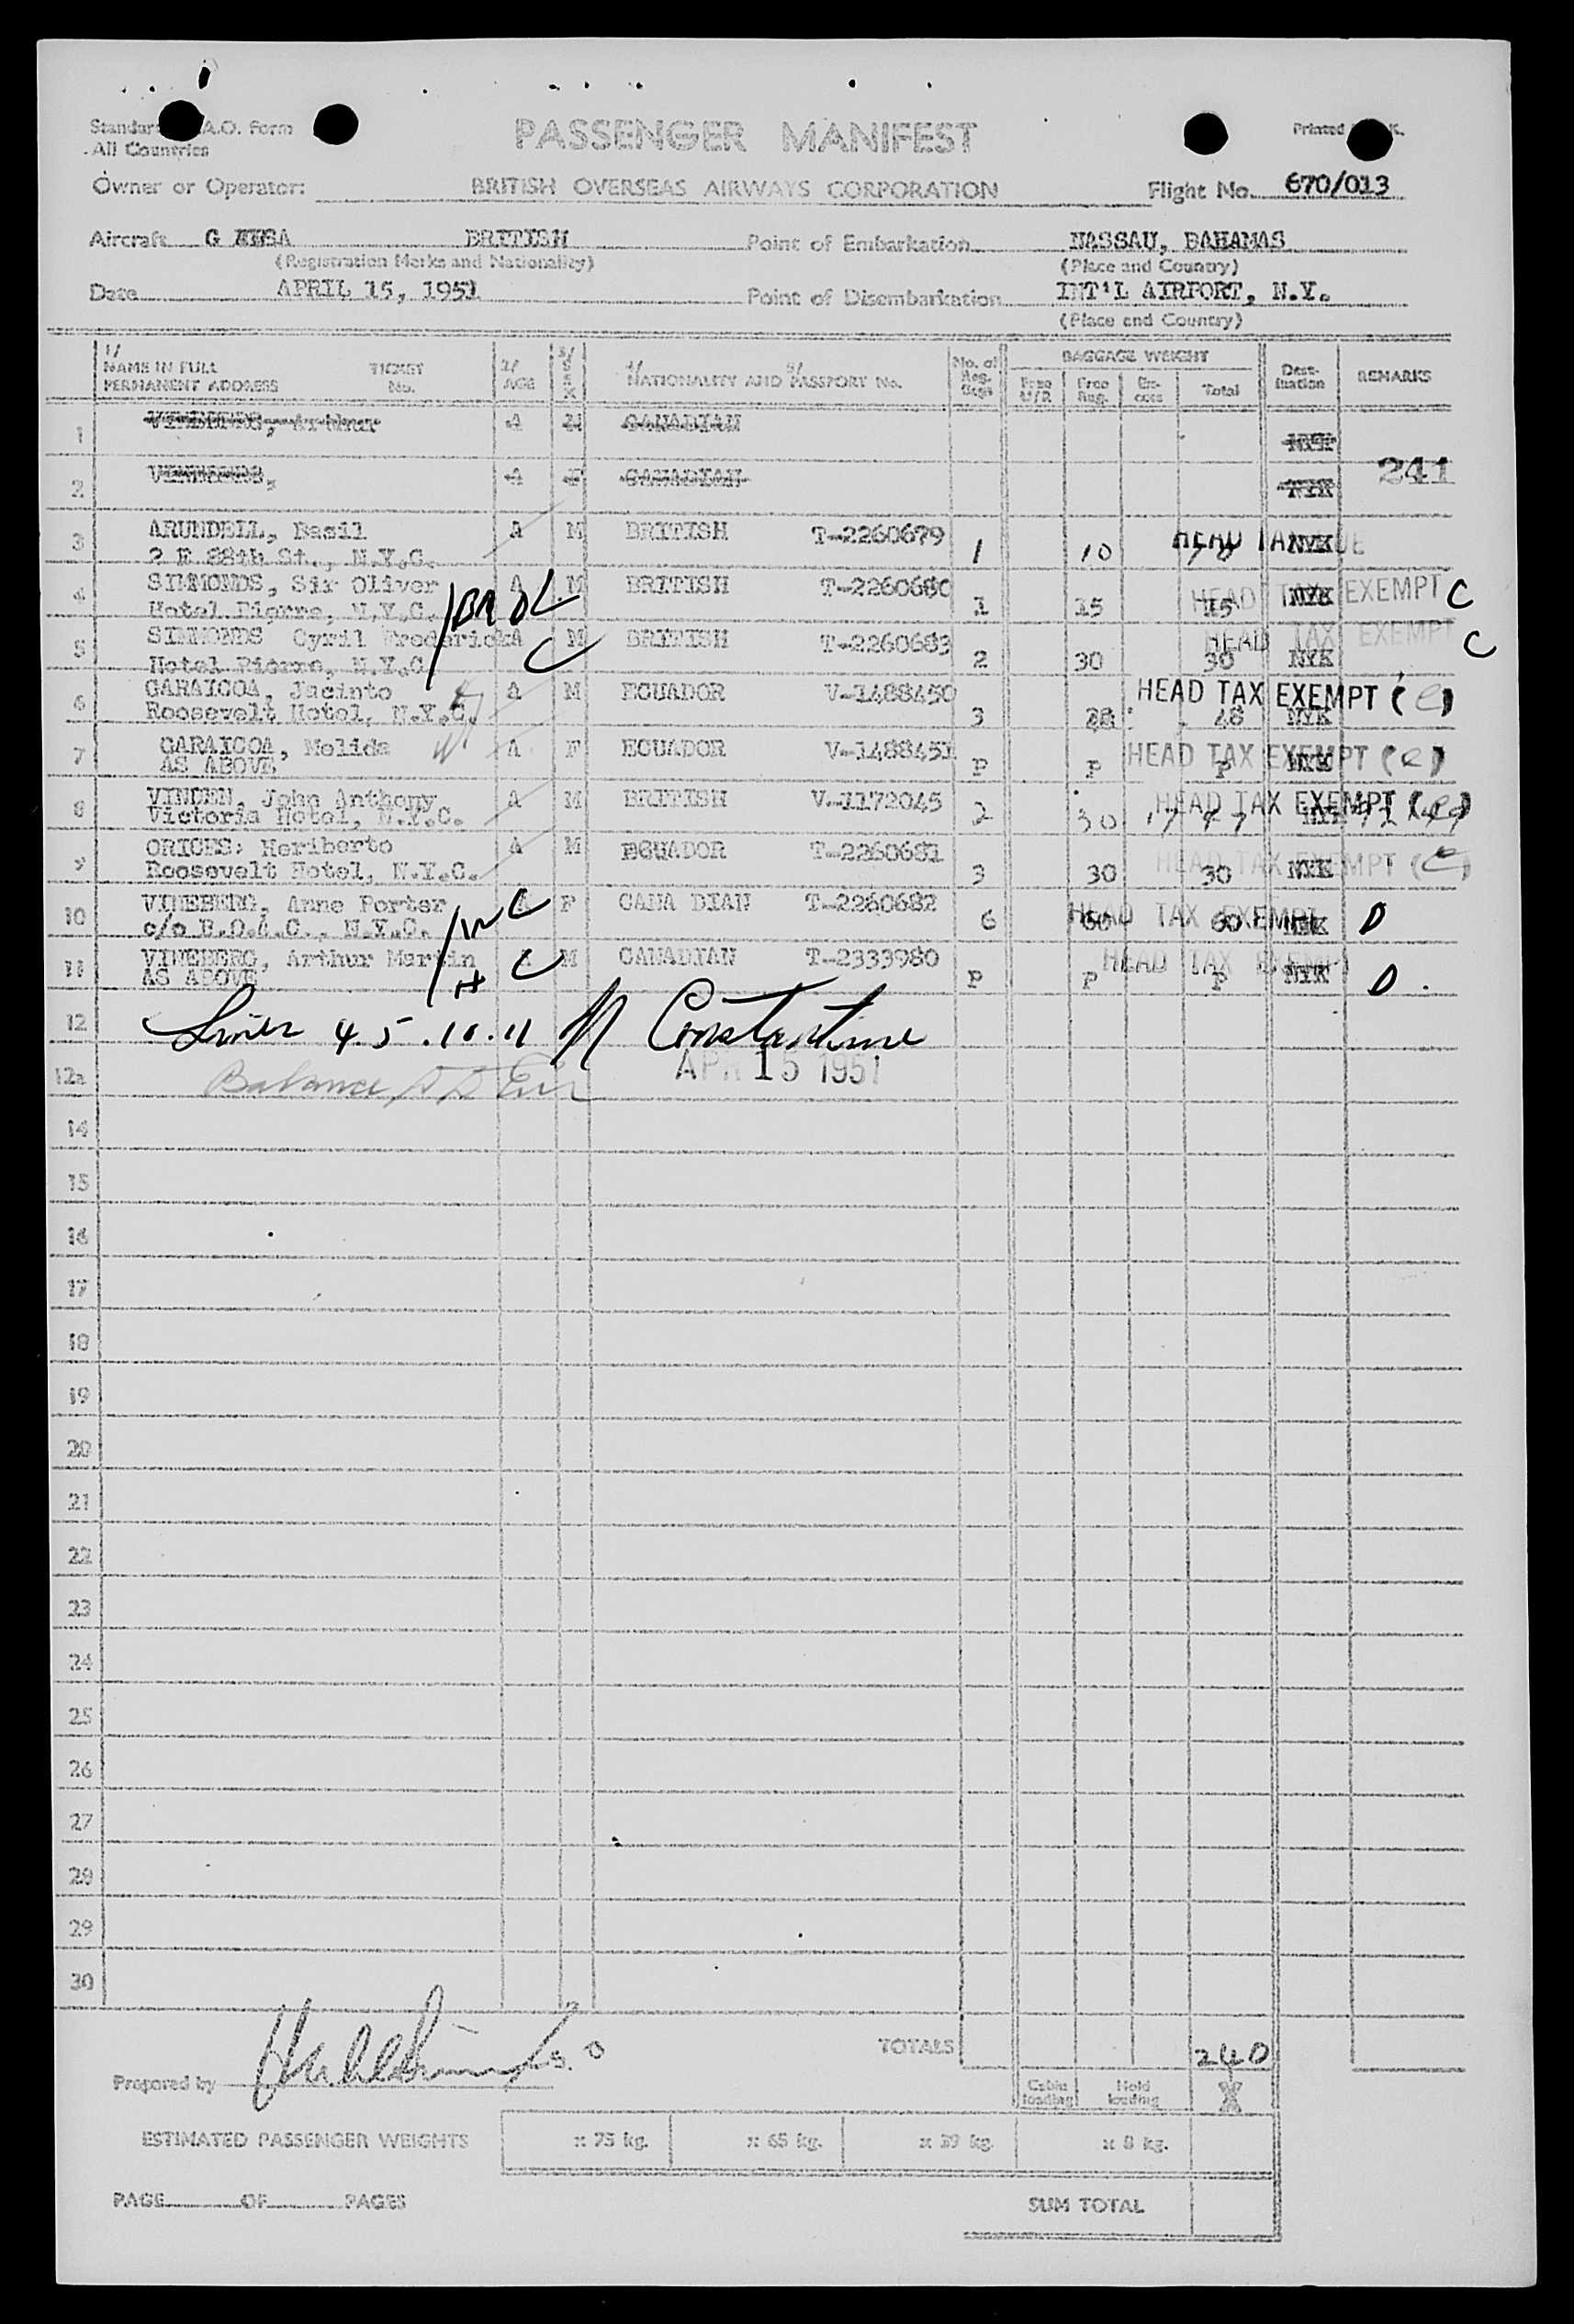 PASSENGER MANIFEST
All Countries
Printed
Owner or Operator: BRITISH OVERSEAS AIRWAYS CORPORATION Flight No. 670/013
Aircraft G BRITISH Point of Embarkation NASSAU, BAHAMAS
(Registration Marks and Nationality) (Place and Country)
Date APRIL 15, 1951 Point of Disembarkation INT'L AIRPORT, N.Y.
(Place and Country)
1/ NAME IN FULL PERMANENT ADDRESS TICKET No. 2/ AGE 3/ SEX 4/ NATIONALITY AND 5/ PASSPORT No. No. of BAGGAGE WEIGHT Total Destination REMARKS
1 Arthur A M CANADIAN NYK
2 A F CANADIAN NYK 241
3 ARUNDELL, Basil A M BRITISH T-2260679 1 10 HEAD TAX NYK
E 88th St., N.Y.C.
4 SIMMONDS, Sir Oliver A M BRITISH T-2260680 1 15 15 NYK HEAD TAX EXEMPT C
Hotel Pierre, N.Y.C.
5 SIMMONDS Cyril Frederick A M BRITISH T-2260683 2 30 30 NYK HEAD TAX EXEMPT C
Hotel Pierre, N.Y.C.
6 GARAICOA, Jacinto A M ECUADOR V-1488450 3 28 28 NYK HEAD TAX EXEMPT (e)
Roosevelt Hotel, N.Y.C.
7 GARAICOA, Melida A F ECUADOR V-1488451 P P P NYK HEAD TAX EXEMPT (e)
AS ABOVE
8 VINDEN, John Anthony A M BRITISH V-1172045 2 30 NYK HEAD TAX EXEMPT (e)
Victoria Hotel, N.Y.C.
9 ORICES: Heriberto A M ECUADOR T-2260681 3 30 30 NYK HEAD TAX EXEMPT (e)
Roosevelt Hotel, N.Y.C.
10 VINEBERG, Anne Porter A F CANA DIAN T-2260682 6 60 60 NYK HEAD TAX EXEMPT D
c/o B.O.A.C., N.Y.C.
11 VINEBERG, Arthur Martin A M CANADIAN T-2333980 P P P NYK HEAD TAX EXEMPT D
AS ABOVE
12 Lines 4.5.10.11 N Constantine
APR 15 1951
12a Balance
14
15
16
17
18
19
20
21
22
23
24
25
26
27
28
29
30
TOTALS 240
Prepared by
Cabin loading Hold loading
ESTIMATED PASSENGER WEIGHTS x 75 kg. x 65 kg. x 39 kg. x 8 kg.
PAGE OF PAGES SUM TOTAL